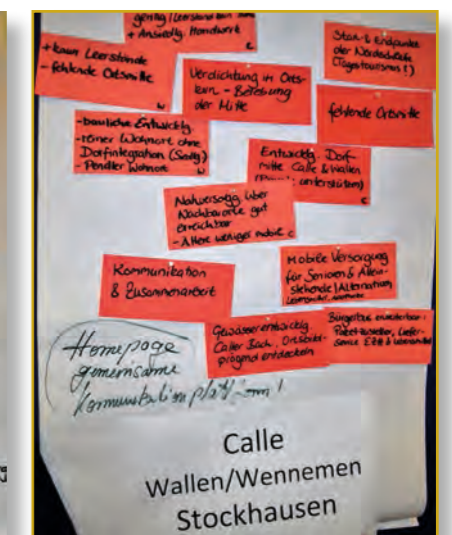 + Ansiedlg. Handwerk
c
+ kaum Leerstände
- fehlende Ortsmitte
w
Verdichtung in Orts-
kern - Belebung
der Mitte
Start & Endpunkte
der Nordschleife
(Tagestourismus!)
fehlende Ortsmitte
- bauliche Entwicklg.
- reiner Wohnort ohne
Dorfintegration (Sdlg)
- Pendler Wohnort
w
Entwicklg. Dorf-
mitte Calle & Wallen
unterstützen)
c
Nahversorgg. über
Nachbarorte gut
erreichbar
- Ältere weniger mobil
c
Kommunikation
& Zusammenarbeit
Mobile Versorgung
für Senioren & Allein-
stehende/Alternativen
Gewässerentwicklg.
Caller Bach. Ortsbild-
prägend entdecken
Bürgerbus erweiterbar:
Paketzusteller, Liefer-
service
Homepage
gemeinsame
Kommunikationsplattform!
Calle
Wallen/Wennemen
Stockhausen